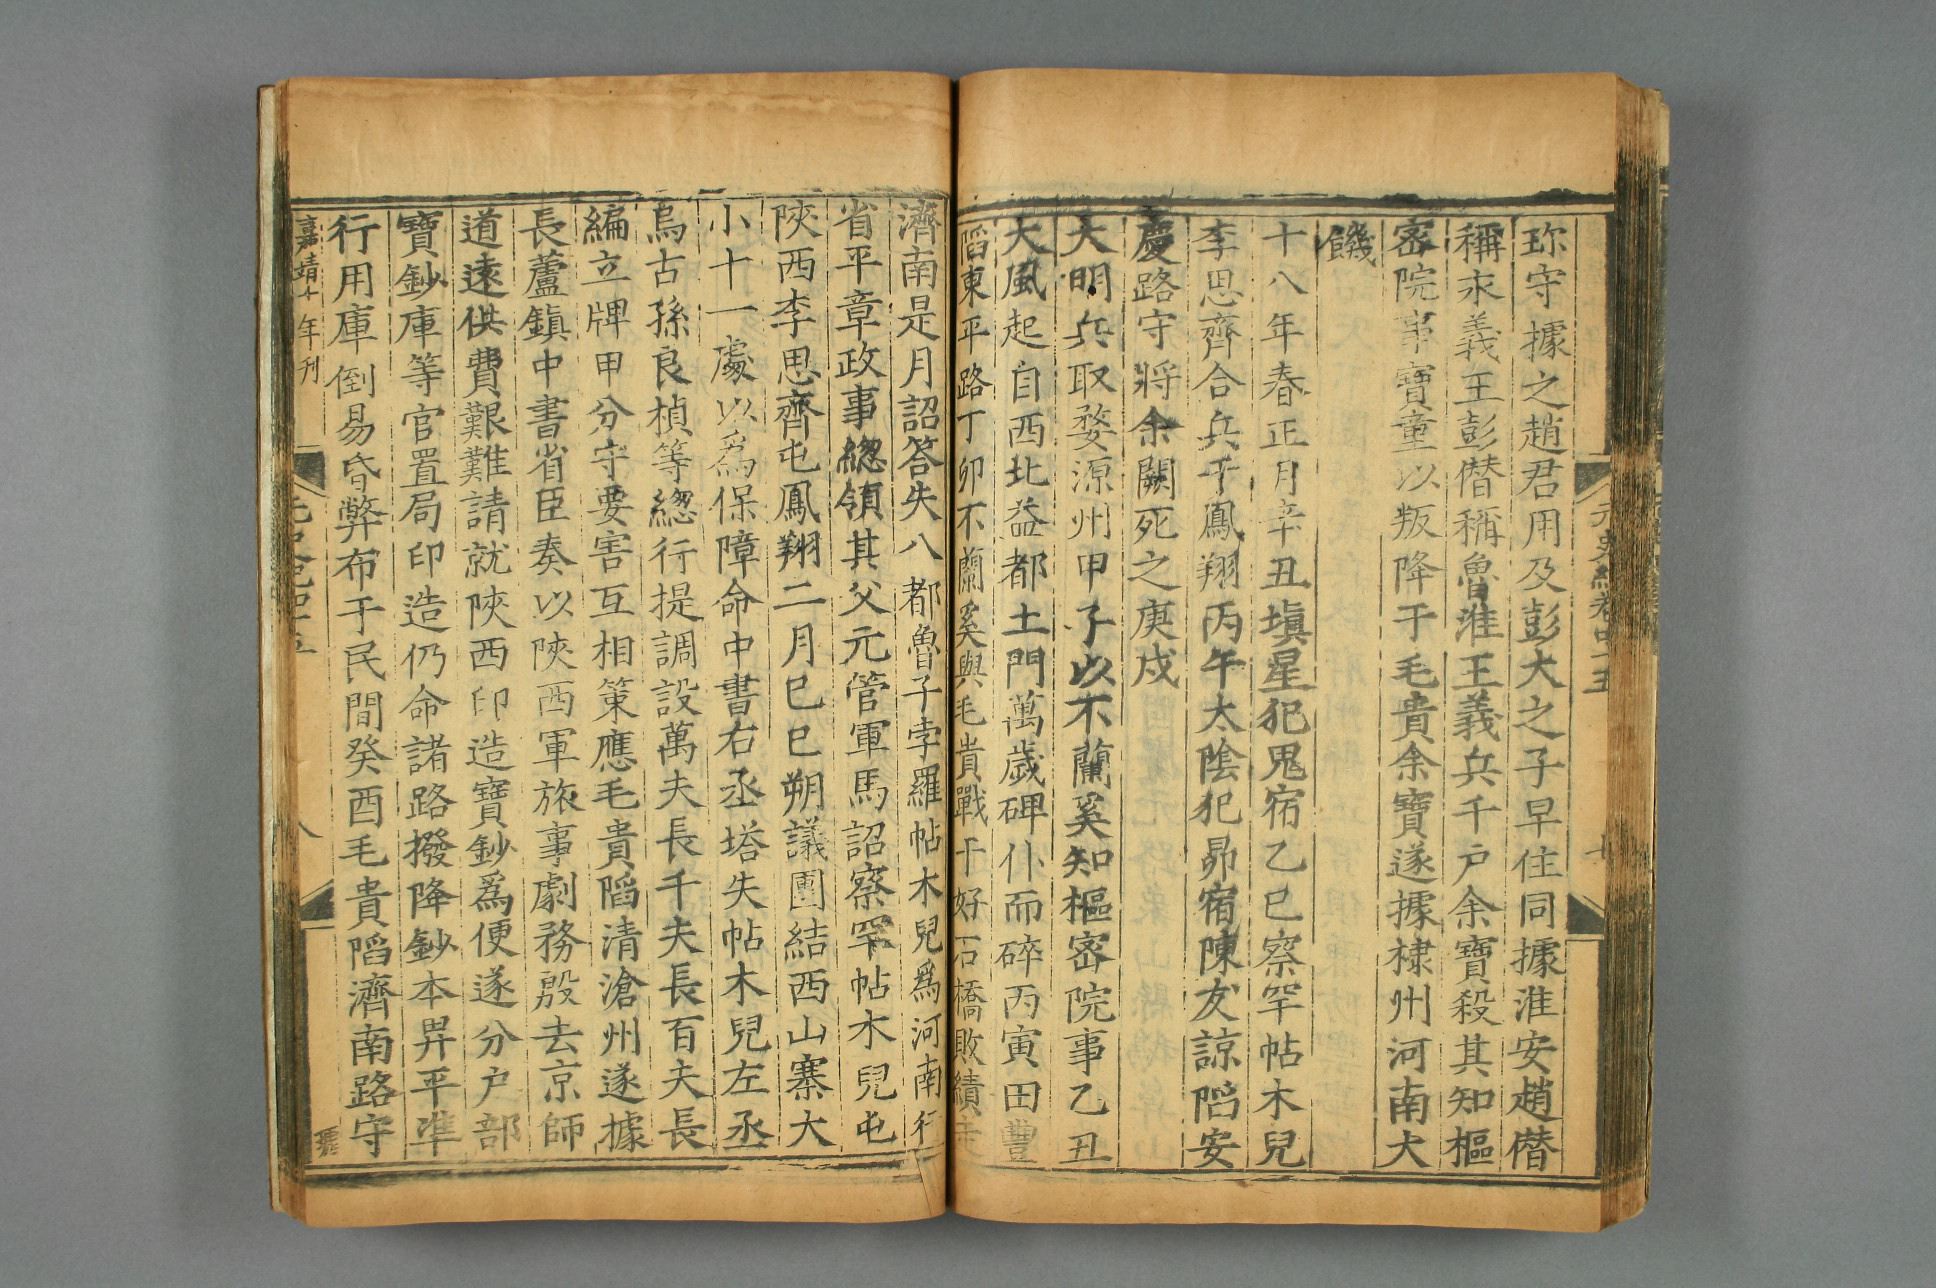 元史紀卷四十五
珎守據之趙君用及彭大之子早住同據淮安趙僣
稱永義王彭僣稱魯淮王義兵千户余寶殺其知樞
密院事寶童以叛降于毛貴余寶遂據棣州河南大
饑
十八年春正月辛丑塡星犯鬼宿乙巳察罕帖木兒
李思齊合兵于鳳翔丙午太陰犯昴宿陳友諒陷安
慶路守將余闕死之庚戍
大明兵取婺源州甲子以不蘭奚知樞密院事乙丑
大風起自西北益都土門萬歲碑仆而碎丙寅田豐
陷東平路丁卯不蘭奚與毛貴戰于好石橋敗績走
濟南是月詔答失八都魯子孛羅帖木兒爲河南行
省平章政事緫領其父元管軍馬詔察罕帖木兒屯
陝西李思齊屯鳳翔二月己巳朔議團結西山寨大
小十一處以爲保障命中書右丞塔失帖木兒左丞
烏古孫良楨等緫行提調設萬夫長千夫長百夫長
編立牌甲分守要害互相策應毛貴陷清滄州遂據
長蘆鎮中書省臣奏以陝西軍旅事劇務殷去京師
道遠供費艱難請就陝西印造寶鈔爲便遂分户部
寶鈔庫等官置局印造仍命諸路撥降鈔本畀平準
行用庫倒易昏弊布于民間癸酉毛貴陷濟南路守
嘉靖十年刊
八